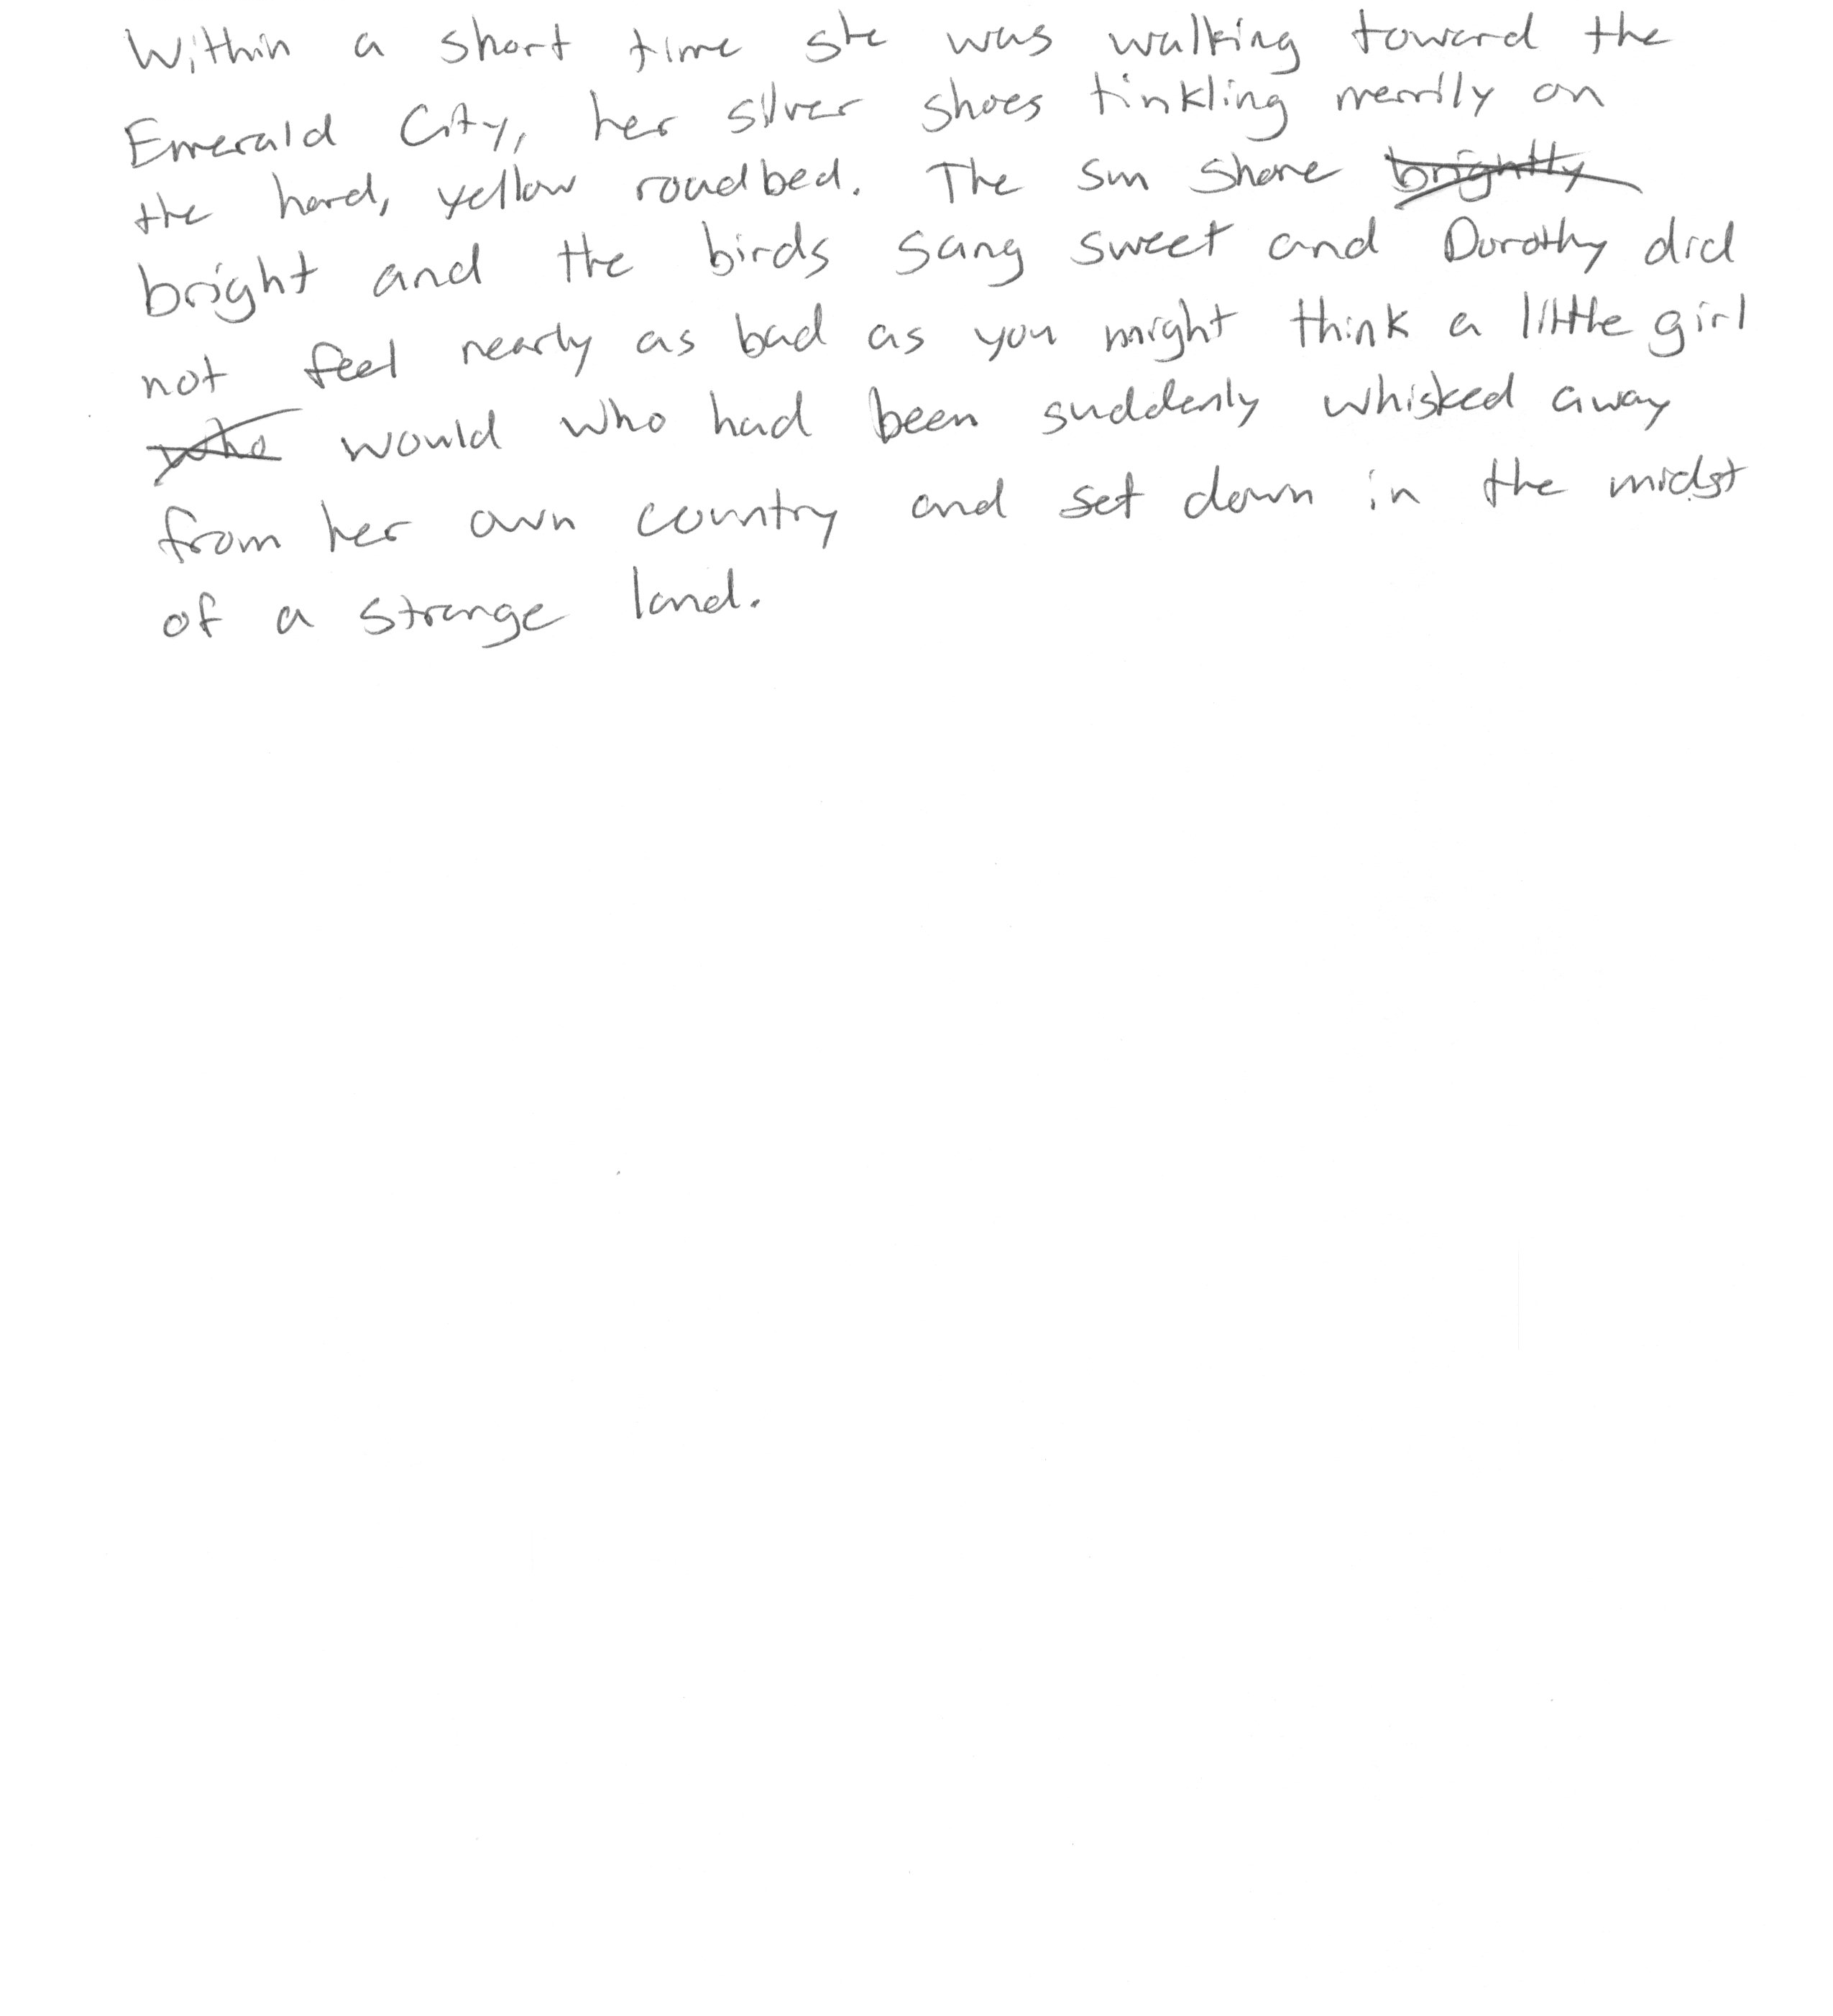 Within a short time she was walking toward the
Emerald City, her silver shoes tinkling merrily on
the hard, yellow roadbed. The sun shone ~~brightly~~
bright and the birds sang sweet and Dorothy did
not feel nearly as bad as you might think a little girl
~~who~~ would who had been suddenly whisked away
from her own country and set down in the midst
of a strange land.